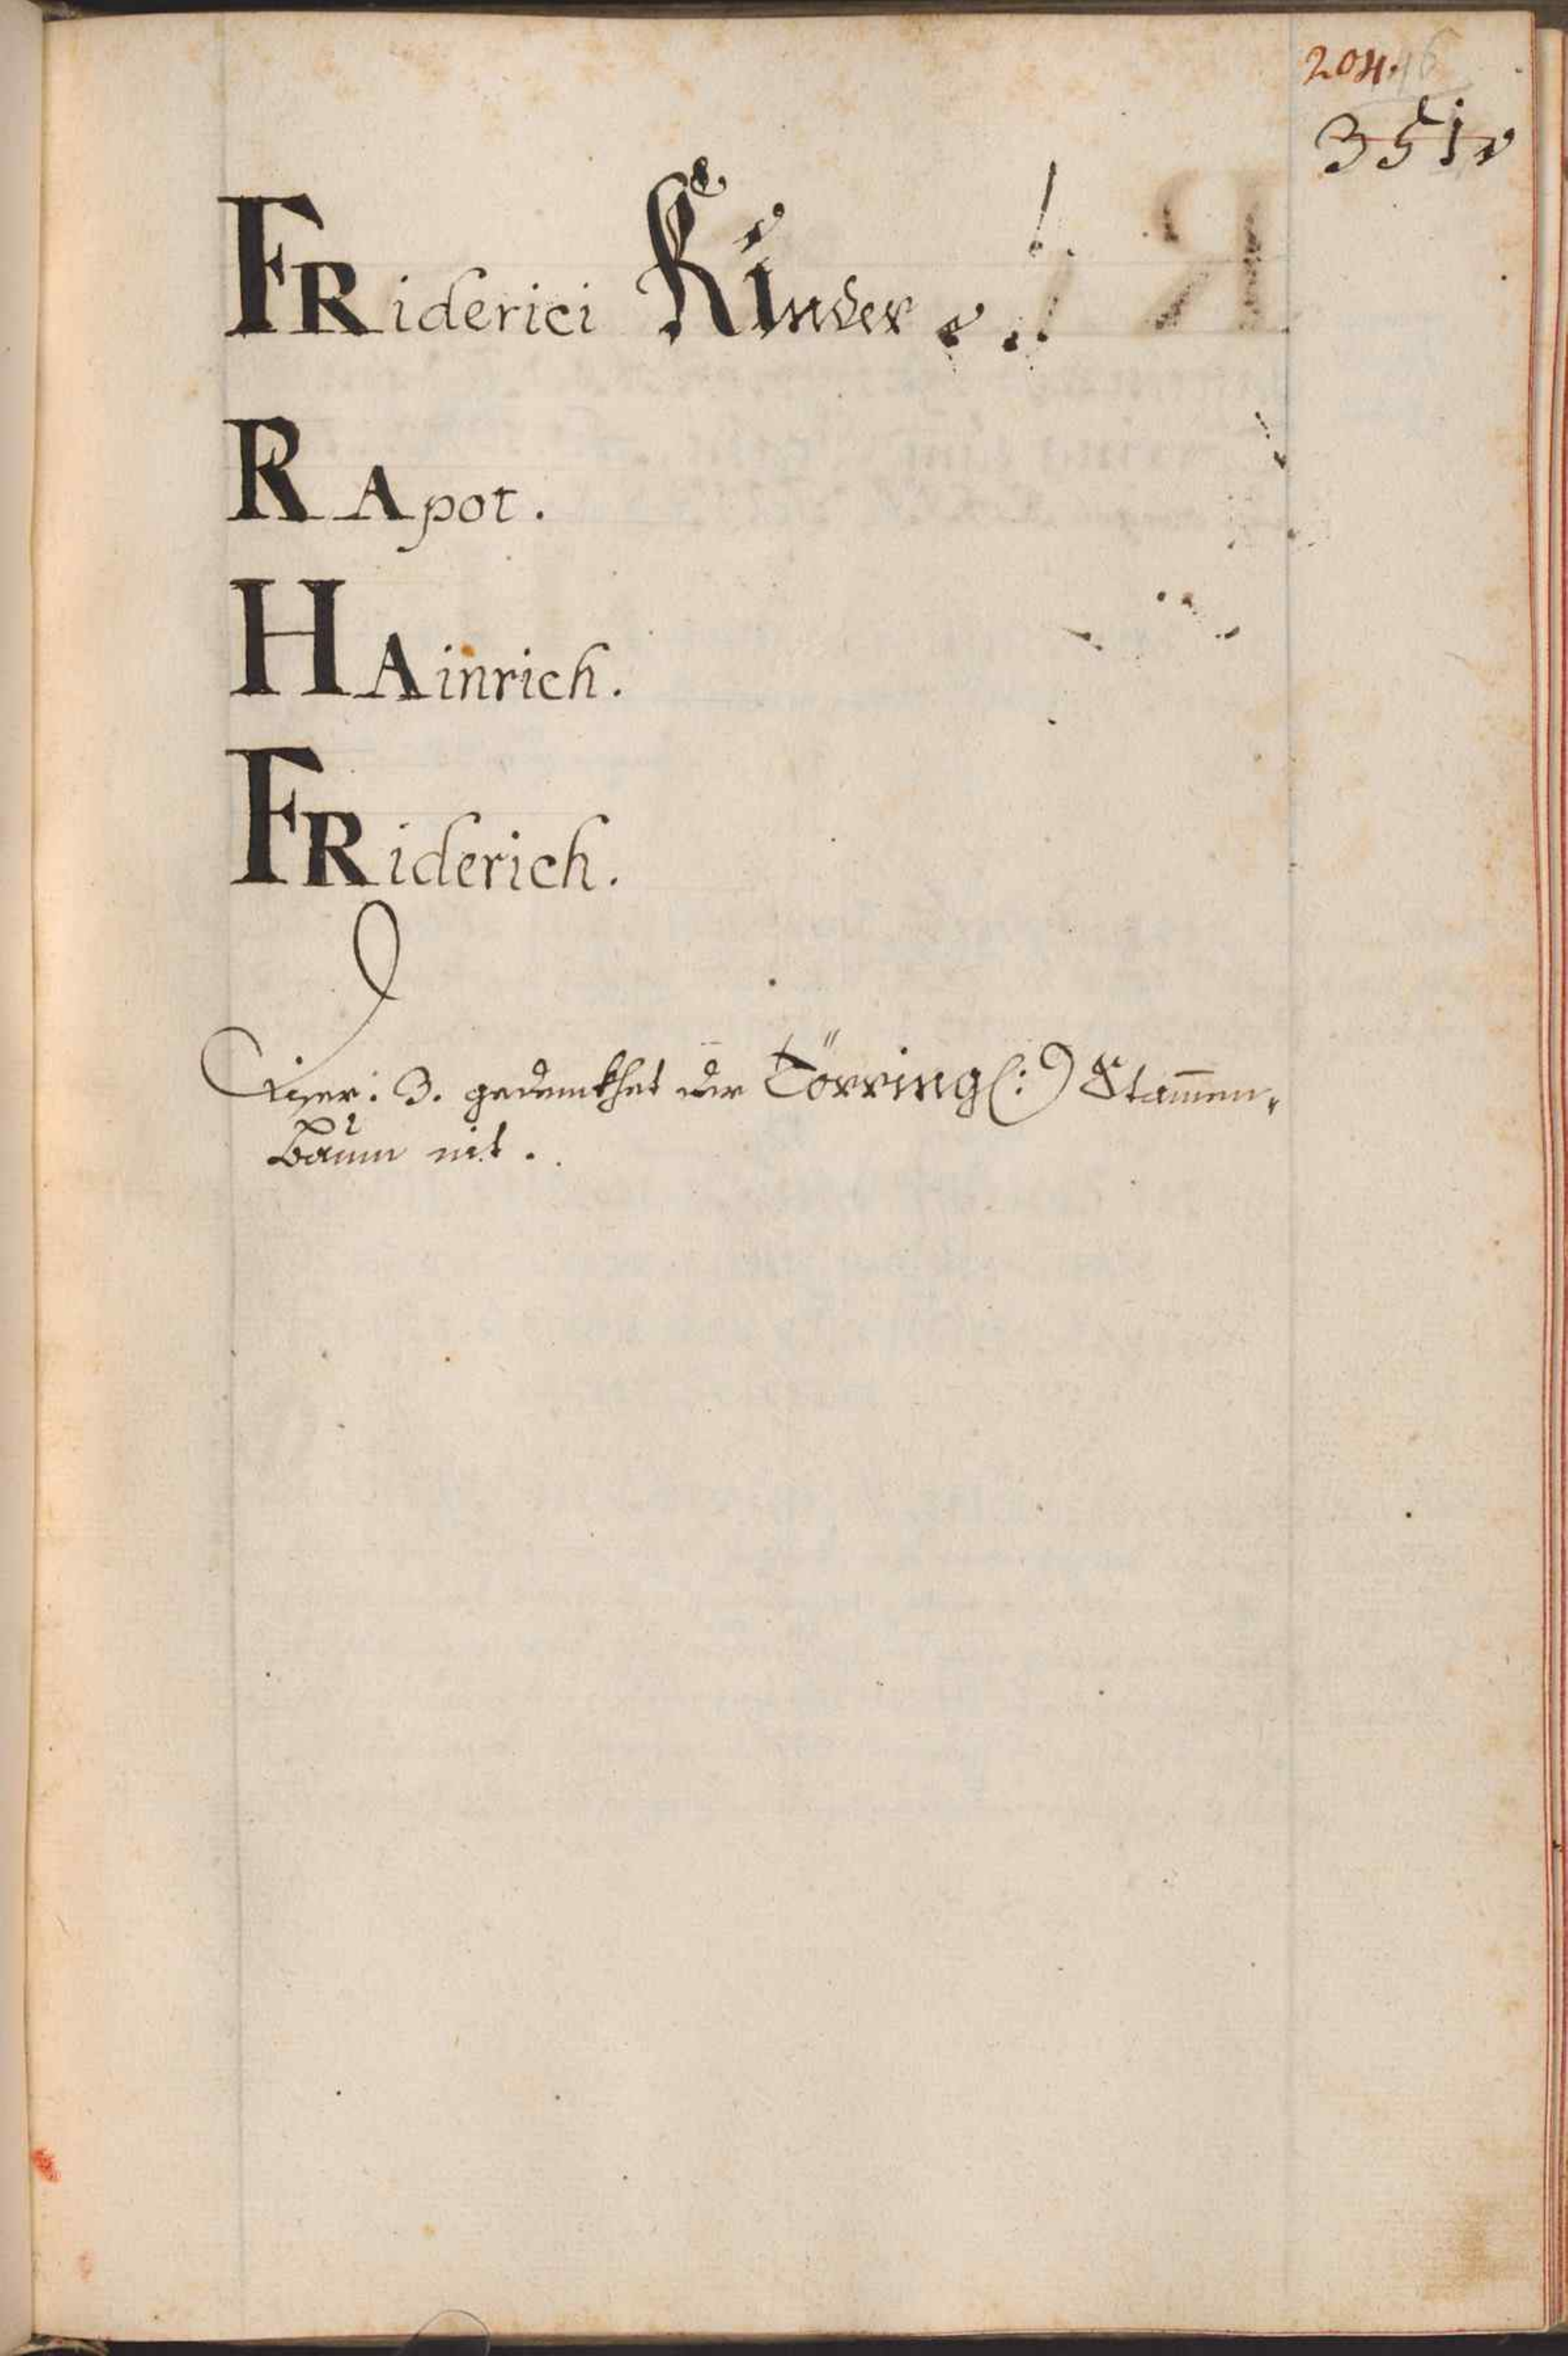 204.
351
FRiderici Kinder.
RApot.
HAinrich.
FRiderich.
Diser: 3. gedenkhet der Törring(:) Stammen„
Baum nit.